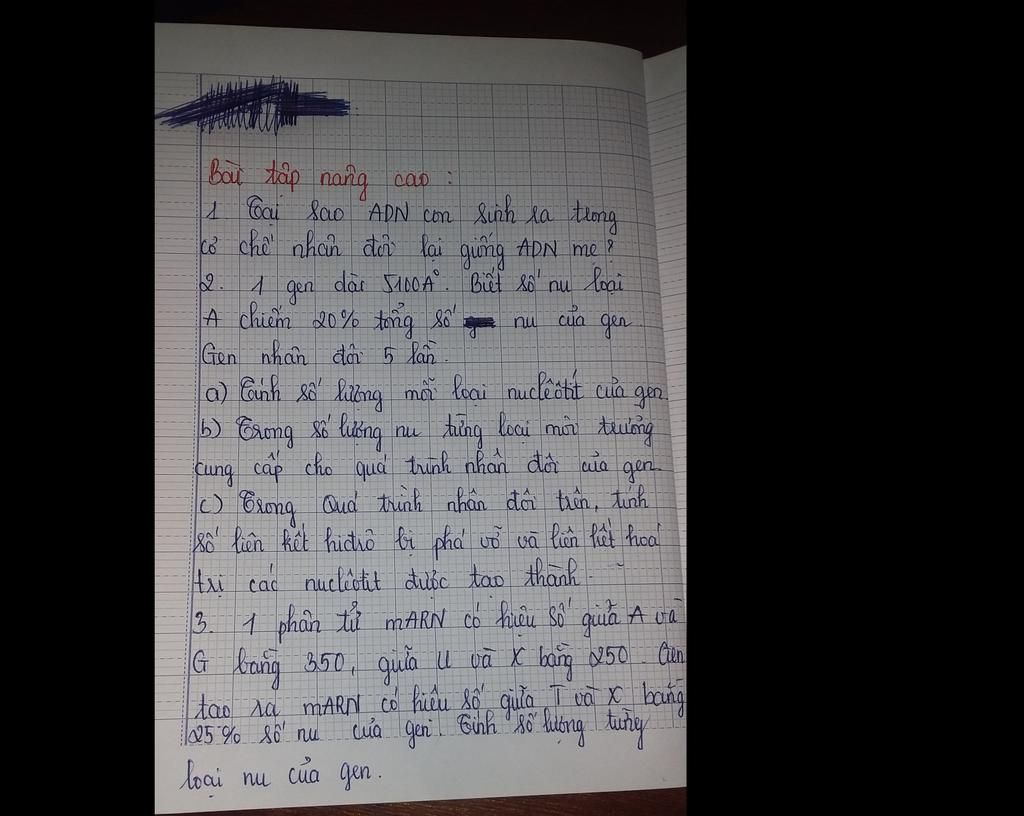 Bài tập nâng cao :
1. Tại sao ADN con sinh ra trong
cơ chế nhân đôi lại giống ADN mẹ ?
2. 1 gen dài 5100A°. Biết số nu loại
A chiếm 20% tổng số nu của gen.
Gen nhân đôi 5 lần.
a) Tính số lượng mỗi loại nuclêôtit của gen
b) Trong số lượng nu từng loại môi trường
cung cấp cho quá trình nhân đôi của gen.
c) Trong Quá trình nhân đôi trên, tính
số liên kết hiđrô bị phá vỡ và liên kết hoá
trị các nuclêôtit được tạo thành.
3. 1 phân tử mARN có hiệu số giữa A và
G bằng 350, giữa U và X bằng 250. Gen
tạo ra mARN có hiệu số giữa T và X bằng
25% số nu của gen. Tính số lượng từng
loại nu của gen.